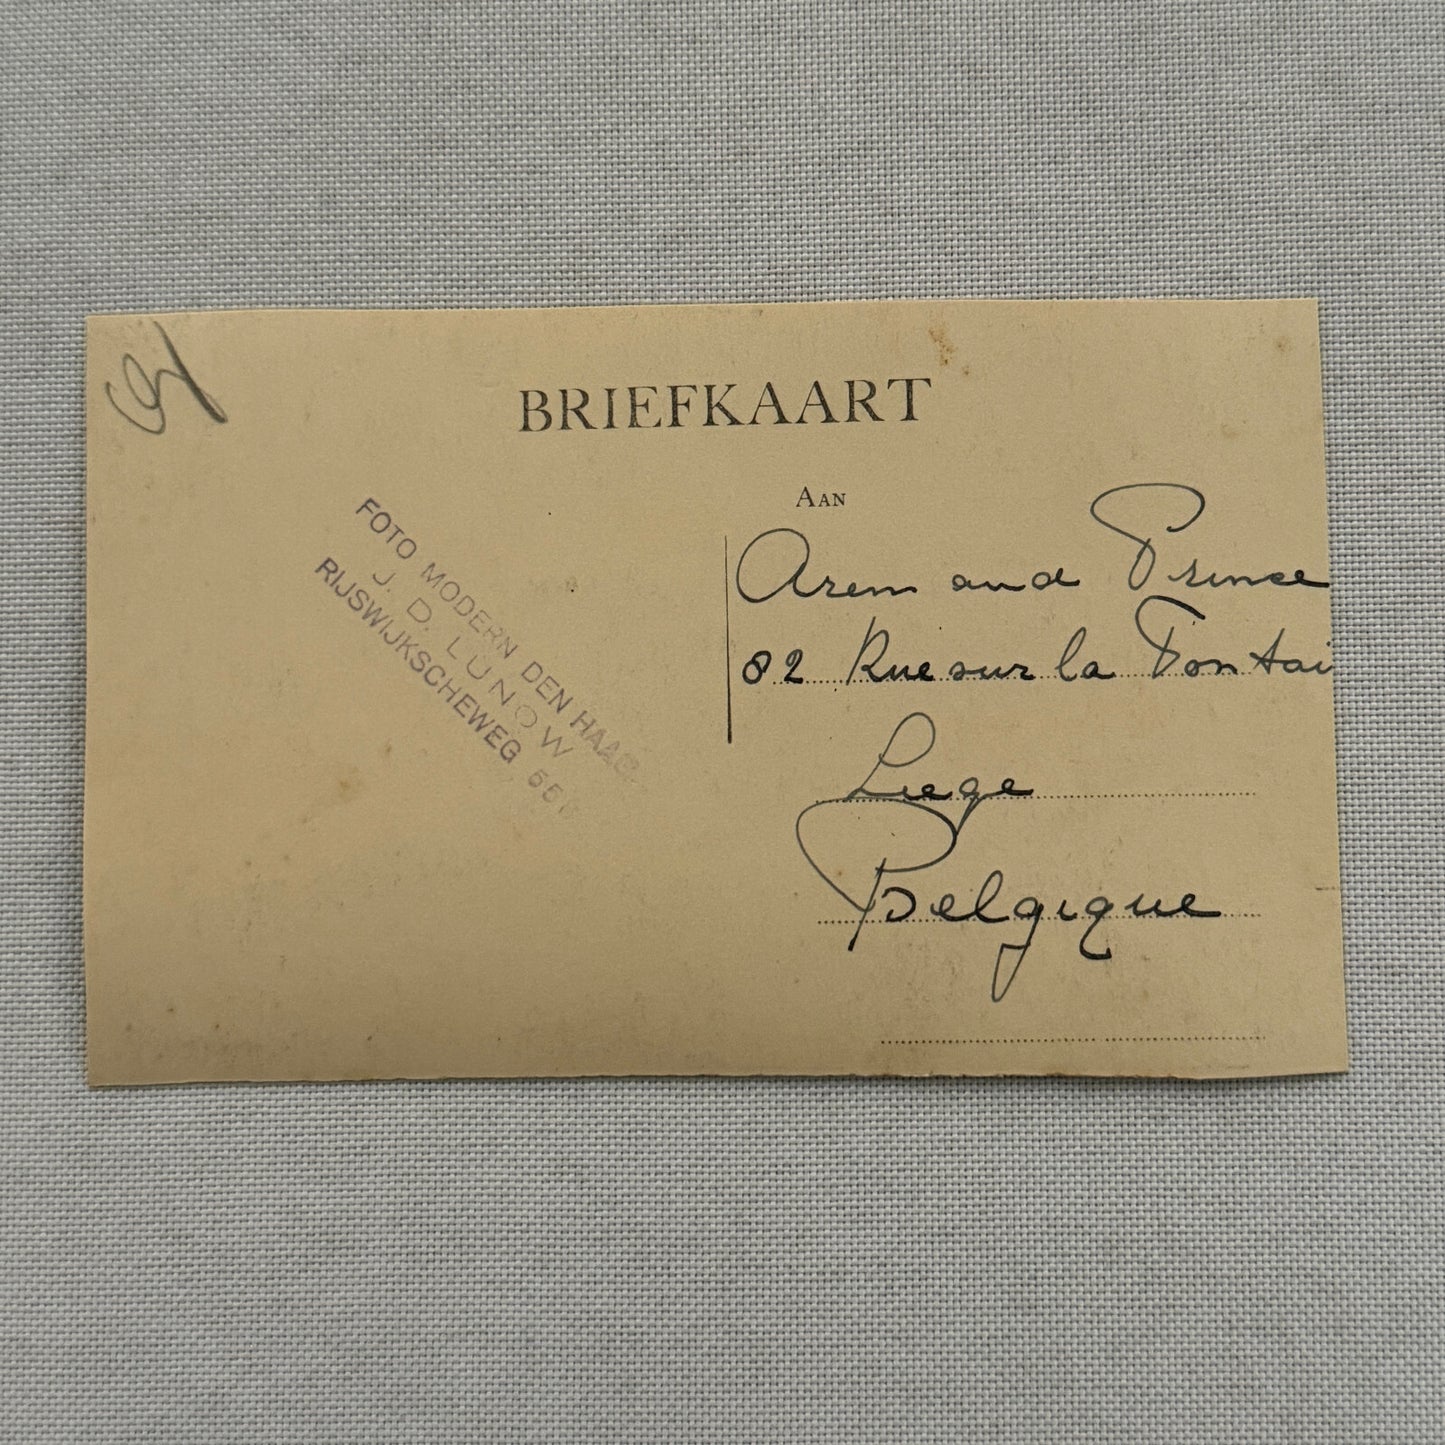 BRIEFKAART
AAN
Arem and Prince
82 Rue sur la Fontai
Liege
Belgique
FOTO MODERN DEN HAAG
J. D. LUNOW
RIJSWIJKSCHEWEG